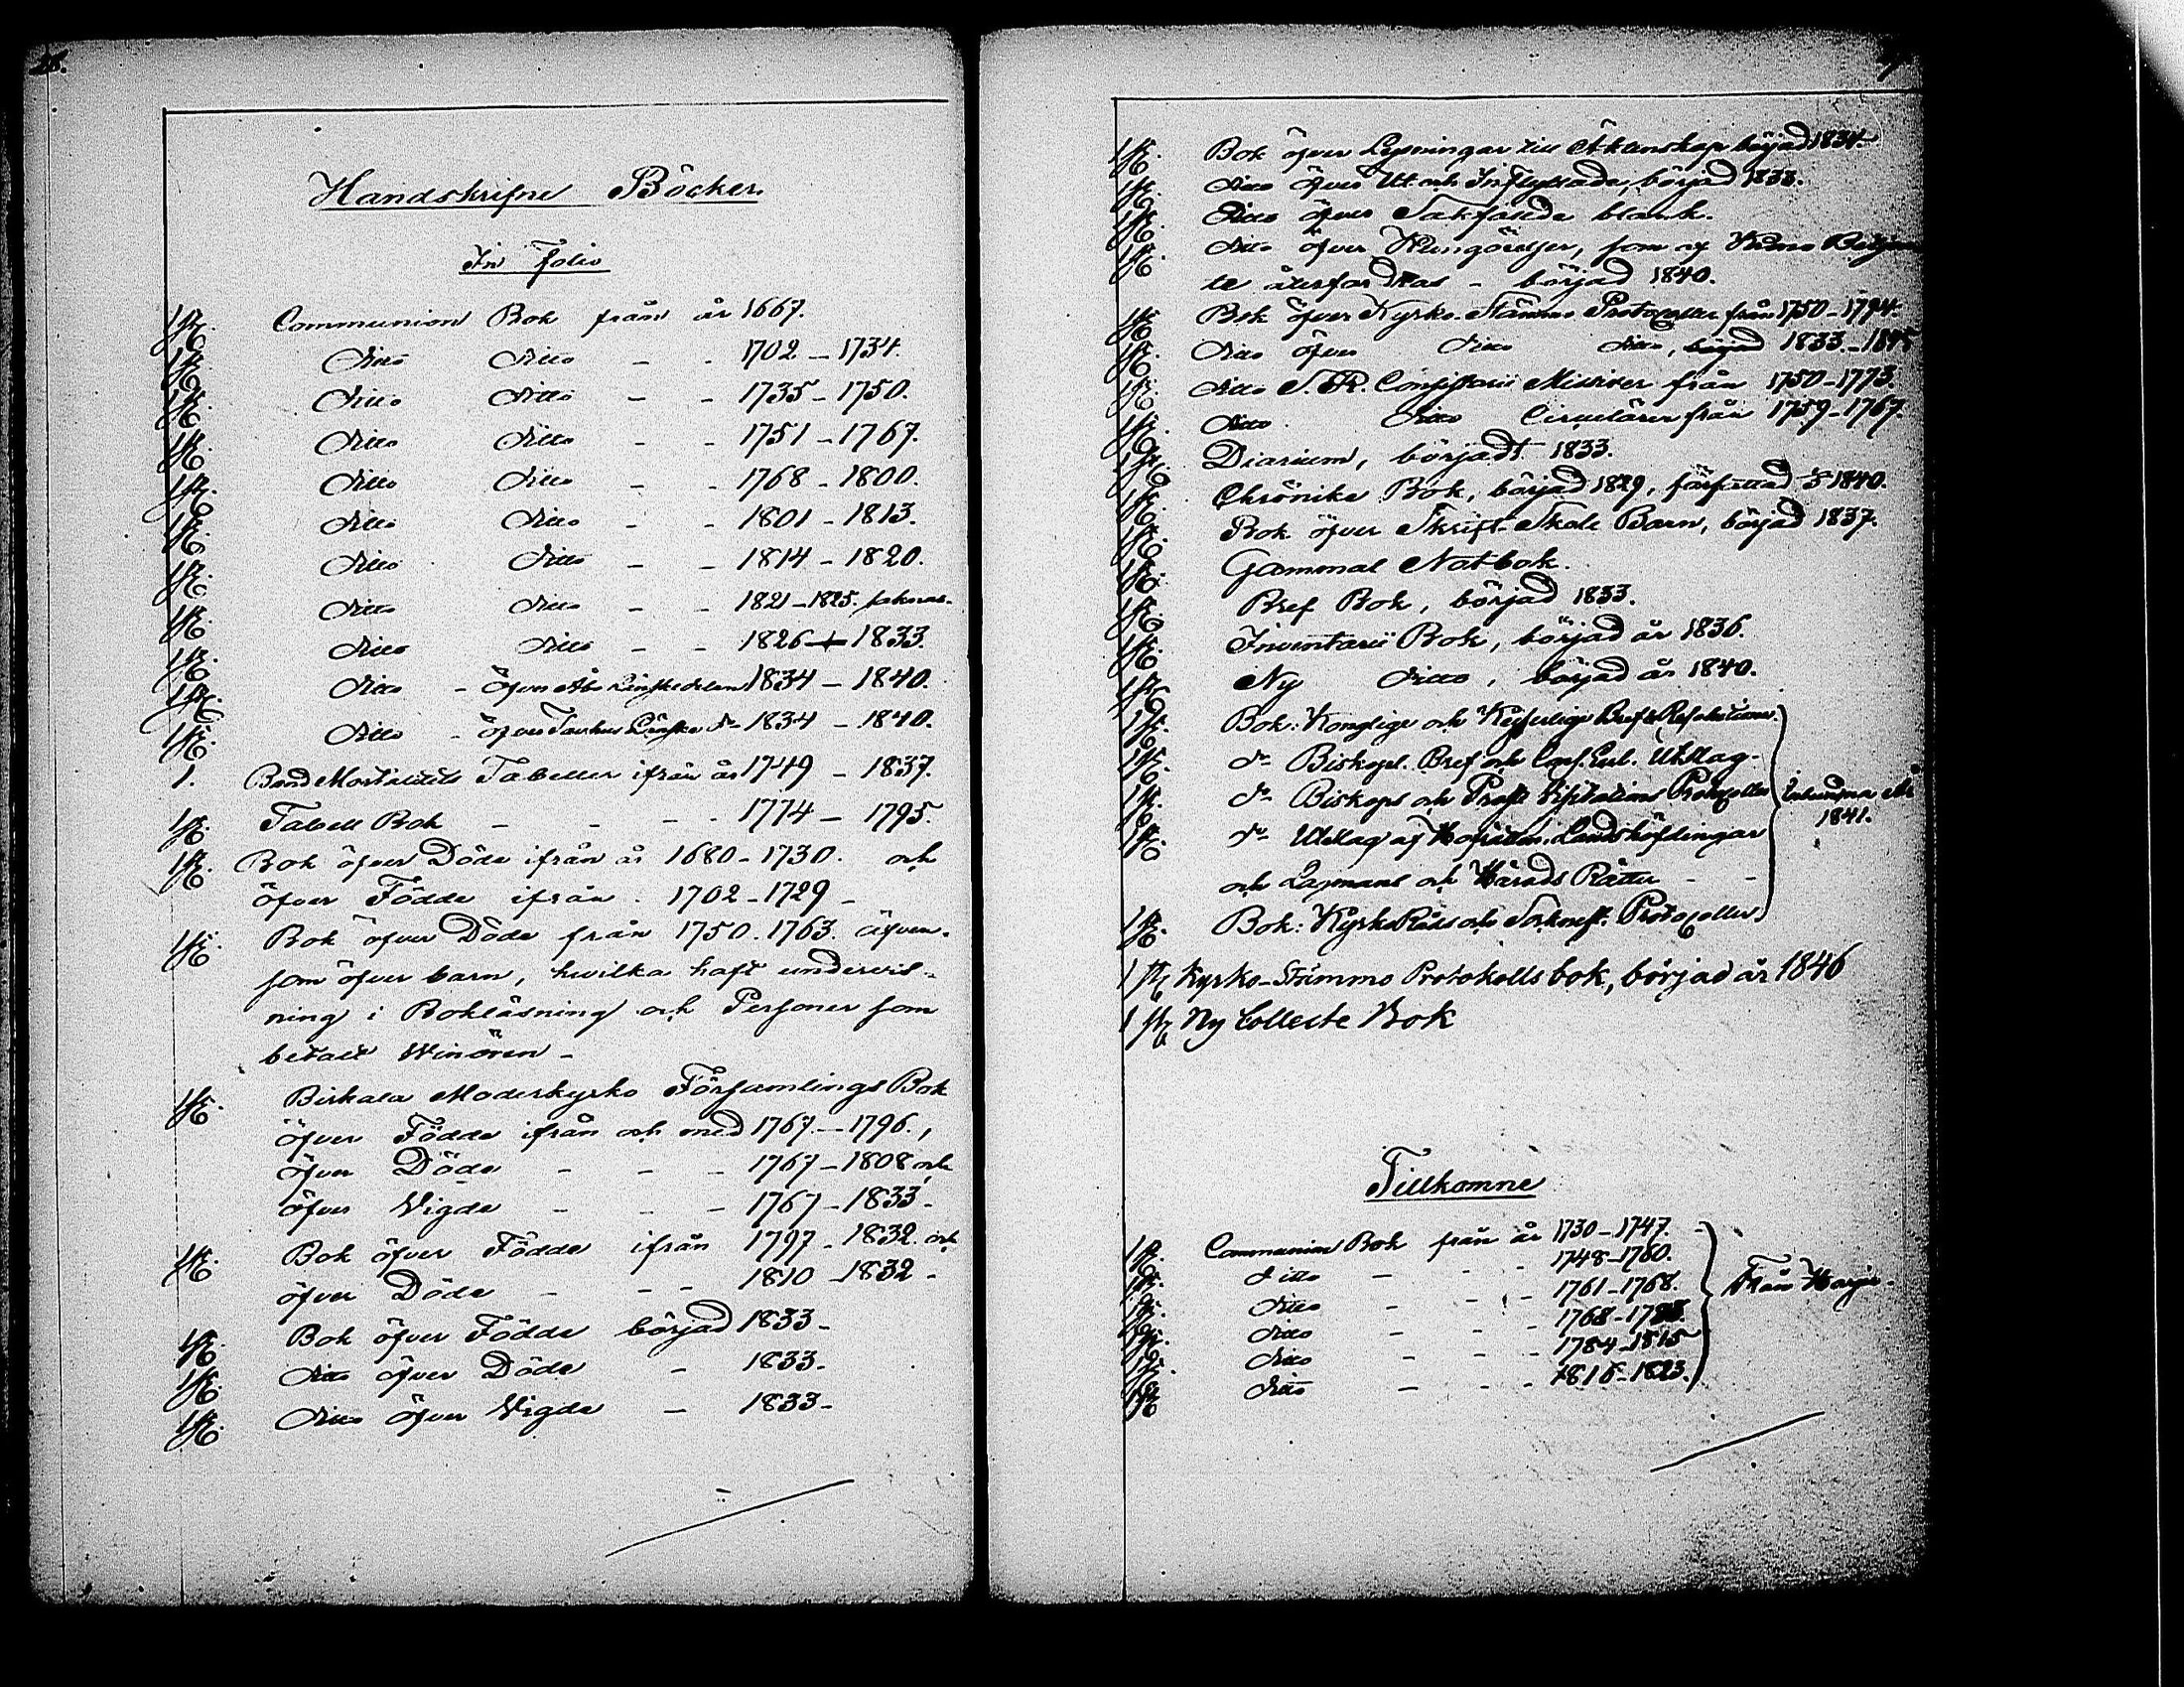 28.
Handskrifne Böcker
In Folio
1 St. Communion Bok från år 1667.
1 St. Ditto Ditto - - 1702 - 1734.
1 St. Ditto Ditto - - 1735 - 1750.
1 St. Ditto Ditto - - 1751 - 1767.
1 St. Ditto Ditto - - 1768 - 1800.
1 St. Ditto Ditto - - 1801 - 1813.
1 St. Ditto Ditto - - 1814 - 1820.
1 St. Ditto Ditto - - 1821 - 1825. saknas.
1 St. Ditto Ditto - - 1826 - 1833.
1 St. Ditto - öfver Åbo Länske delen 1834 - 1840.
1 St. Ditto - öfver Tavthus Länske do 1834 - 1840.
1. Band Mortalitets Tabeller ifrån år 1749 - 1837.
1 St. Tabell Bok - - - - 1774 - 1795.
1 St. Bok öfver Döde ifrån år 1680 - 1730. och
öfver Födde ifrån 1702 - 1729 -
1 St. Bok öfver Döde från 1750. 1763. äfven-
som öfver barn, hwilka haft undervis-
ning i Bokläsning och Personer som
betalt Winören -
1 St. Birkala Moderkyrko Församlings Bok
öfver Födde ifrån och med 1767 - 1796.,
öfver Döde - - - 1767 - 1808 och
öfver Vigde - - - 1767 - 1833 -
1 St. Bok öfver Födde ifrån 1797 - 1832. och
öfver Döde - - - 1810 - 1832 -
1 St. Bok öfver Födde börjad 1833 -
1 St. Ditto öfver Döde - 1833 -
1 St. Ditto öfver Vigde - 1833 -
1 St. Bok öfver Lysningar till Äktenskap börjad 1834.
1 St. Ditto öfver Ut och Inflyttade, börjad 1833.
1 St. Ditto öfver Sakfälda blank.
1 St. Ditto öfver Kungörelser, som af Krono
te återfordras - börjad 1840.
1 St. Bok öfver Kyrko-Stämmo Protocoller från 1750 - 1794.
1 St. Ditto öfver Ditto Ditto, börjad 1833. - 1845
1 St. Ditto Consistorii Missiver från 1750 - 1773.
1 St. Ditto Ditto Circulärer från 1759 - 1767.
1 St. Diarium, börjadt 1833.
1 St. Chrönike Bok, börjad 1829, författad 1840.
1 St. Bok öfver Skrift-Skole Barn, börjad 1837.
1 St. Gammal Notbok.
1 St. Bref Bok, börjad 1833.
1 St. Inventarii Bok, börjad år 1836.
1 St. Ny Ditto, börjad år 1840.
1 St. Bok: Konglige och Kejserlige Bref & Resolutioner.
1 St. do Biskopl. Bref och Cons. Utslag.
1 St. do Biskops och Prosts Visitations Protocoller
1 St. do Utslag af Hofrätten, Landshöfdingar
och Lagmans och Härads Rätter - -
1 St. Bok: Kyrko Råds och Protocoller
Inbundna
1841.
1 St. Kyrko-Stämmo Protokolls bok, börjad år 1846
1 St. Ny Collecte Bok
Tillkomne
1 St. Communion Bok från år 1730 - 1747.
1 St. Ditto - - - 1748 - 1760.
1 St. Ditto - - - 1761 - 1768.
1 St. Ditto - - - 1768 - 1783.
1 St. Ditto - - - 1784 - 1815
1 St. Ditto - - - 1816 - 1823.
Från Harju